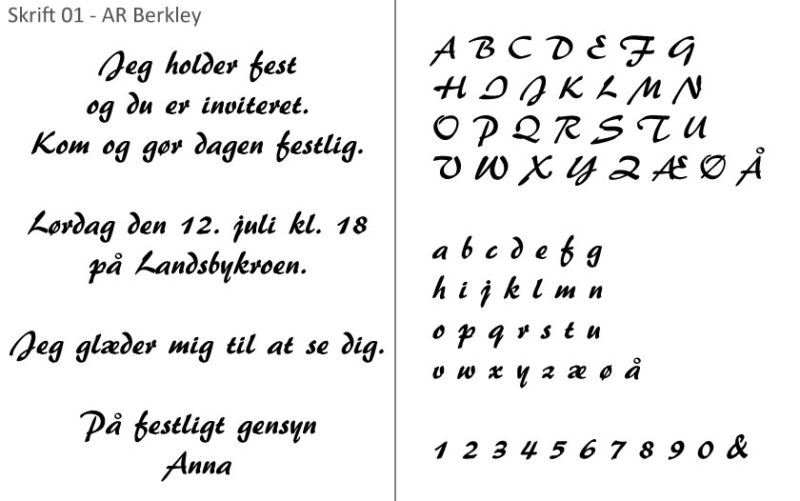 Skrift 01 - AR Berkley
Jeg holder fest
og du er inviteret.
Kom og gør dagen festlig.
Lørdag den 12. juli kl. 18
på Landsbykroen.
Jeg glæder mig til at se dig.
På festligt gensyn
Anna
A B C D E F G
H I J K L M N
O P Q R S T U
V W X Y Z Æ Ø Å
a b c d e f g
h i j k l m n
o p q r s t u
v w x y z æ ø å
1 2 3 4 5 6 7 8 9 0 &